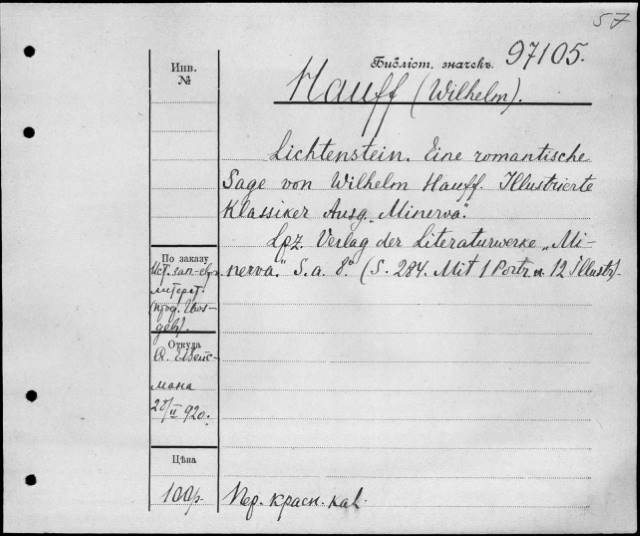 57
Инв.
№
Библіот. значекъ. 97105.
Hauff (Wilhelm).
Lichtenstein. Eine romantische
Sage von Wilhelm Hauff. Illustrierte
Klassiker Ausg. „Minerva."
Lpz. Verlag der Literaturwerke „Mi-
nerva." S. a. 8º. (S. 284. Mit 1 Portr. u. 12 Illustr.).
По заказу
Ист. зап.-евр.
литерат.
Откуда
мана
28/II 920.
Цѣна
100р.
Пер. красн. кал.